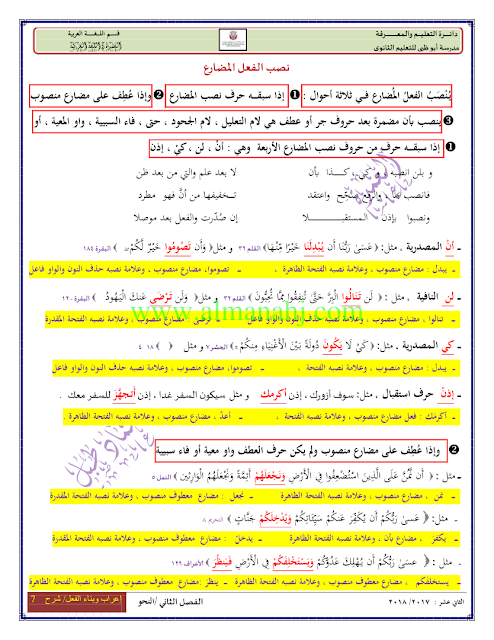 دائـرة التعليـم والمعــرفة
مدرسة أبو ظبي للتعليم الثانوي
قـسم اللـغـة العربية
نصب الفعل المضارع
يُنْصَبُ الفعلُ المُضارع فـي ثلاثة أحوال : ❶ إذا سبقـه حرف نصب المضارع ❷ وإذا عُطِف على مضارع منصوب
❸ ينصب بأن مضمرة بعد حروف جر أو عطف هي لام التعليل ، لام الجحود ، حتى ، فاء السببية ، واو المعية ، أو
❶ إذا سبقـه حرف من حروف نصب المضارع الأربعة وهي : أنْ ، لن ، كيْ ، إذن
و بلن انصبه و كي ، كـذا بأن لا بعد علم والتي من بعد ظن
فانصب بها ، والرفع صَحِّح واعتقد تـخفيفها من أنّ فهو مطرد
ونصبوا بإذن المستقبـلا إن صُدّرت والفعل بعد موصلا
ـ أنْ المصدرية ، مثل: ﴿عَسَىٰ رَبُّنَا أَن يُبْدِلَنَا خَيْرًا مِّنْهَا﴾ القلم ٣٢ و مثل﴿وَأَن تَصُومُوا خَيْرٌ لَّكُمْ﴾ البقرة ١٨٤
ـ يبدل : مضارع منصوب ، وعلامة نصبه الفتحة الظاهرة ، ـ تصوموا: مضارع منصوب ، وعلامة نصبه حذف النون والواو فاعل
ـ لن النافية ، مثل : ﴿ لَن تَنَالُوا الْبِرَّ حَتَّىٰ تُنفِقُوا مِمَّا تُحِبُّونَ ﴾ و مثل﴿ وَلَن تَرْضَىٰ عَنكَ الْيَهُودُ ﴾ البقرة ١٢٠
ـ تنالوا : مضارع منصوب ، وعلامة نصبه حذف النون والواو فاعل ـ ترضى : مضارع منصوب ، وعلامة نصبه الفتحة المقدرة
www.almanahj.com
ـ كي المصدرية ، مثل: ﴿كَيْ لَا يَكُونَ دُولَةً بَيْنَ الْأَغْنِيَاءِ مِنكُمْ﴾ الحشر٧ و مثل
ـ يبدل : مضارع منصوب ، وعلامة نصبه الفتحة ، ـ تصوموا: مضارع منصوب ، وعلامة نصبه حذف النون والواو فاعل
ـ إذنْ حرف استقبال ، مثل: سوف أزورك ، إذن أكرمك و مثل سيكون السفر غدا ، إذن أتجهَّزَ للسفر معك .
ـ أكرمك : فعل مضارع منصوب ، وعلامة نصبه الفتحة ـ أعدّ ، مضارع منصوب ، وعلامة نصبه الفتحة الظاهرة
❷ وإذا عُطِف على مضارع منصوب ولم يكن حرف العطف واو معية أو فاء سببية
ـ مثل : ﴿ أَن نَّمُنَّ عَلَى الَّذِينَ اسْتُضْعِفُوا فِي الْأَرْضِ وَنَجْعَلَهُمْ أَئِمَّةً وَنَجْعَلَهُمُ الْوَارِثِينَ ﴾ النمل ٥
ـ نمن ، مضارع منصوب ، وعلامة نصبه الفتحة الظاهرة ـ نجعل : مضارع معطوف منصوب ، وعلامة نصبه الفتحة المقدرة
ـ مثل:﴿ عَسَىٰ رَبُّكُمْ أَن يُكَفِّرَ عَنكُمْ سَيِّئَاتِكُمْ وَيُدْخِلَكُمْ جَنَّاتٍ ﴾ التحريم ٨
ـ يكفرَ ، مضارع بأن ، وعلامة نصبه الفتحة الظاهرة ـ يدخلَ : مضارع معطوف منصوب ، وعلامة نصبه الفتحة المقدرة
ـ مثل :﴿ عَسَىٰ رَبُّكُمْ أَن يُهْلِكَ عَدُوَّكُمْ وَيَسْتَخْلِفَكُمْ فِي الْأَرْضِ فَيَنظُرَ ﴾ الأعراف ١٢٩
ـ يستخلفكم ، مضارع معطوف منصوب ، وعلامة نصبه الفتحة الظاهرة ـ ينظر: مضارع معطوف منصوب ، وعلامة نصبه الفتحة الظاهرة
الثاني عشر : ٢٠١٧ / ٢٠١٨
الفصل الثاني /النحو
إعراب وبناء الفعل/ شرح 7